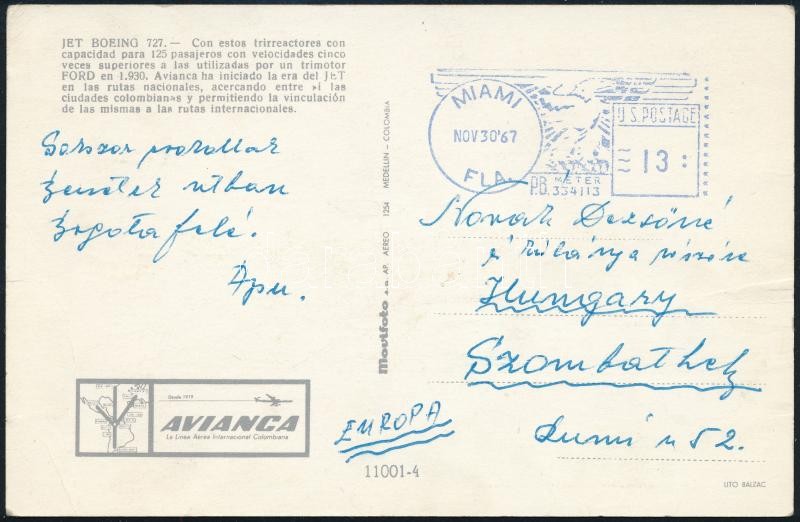 JET BOEING 727.— Con estos trirreactores con
capacidad para 125 pasajeros con velocidades cinco
veces superiores a las utilizadas por un trimotor
FORD en 1.930. Avianca ha iniciado la era del JET
en las rutas nacionales, acercando entre si las
ciudades colombianas y permitiendo la vinculación
de las mismas a las rutas internacionales.
utban
Bogota felé.
Apu.
Desde 1919
AVIANCA
La Línea Aérea Internacional Colombiana
EUROPA
11001-4
Movifoto s.a. AP. AEREO 1254 MEDELLIN - COLOMBIA
MIAMI
NOV 30 '67
FLA.
U.S. POSTAGE
13
P.B. METER
334113
Novak Dezsőné
és részére
Hungary
Szombathely
u 52.
LITO BALZAC